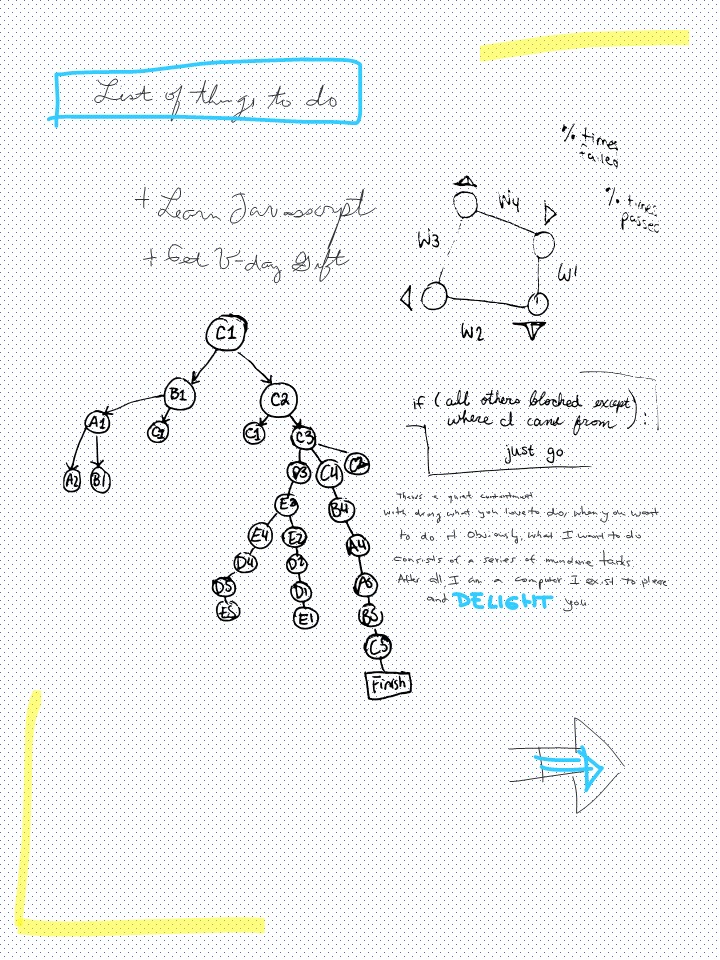 List of things to do
% times
failed
% times
passed
+ Learn Javascript
+ Get V-day Gift
W4
W3
W1
W2
C1
B1
C2
A1
C1
C1
C3
A2
B1
D3
C4
C2
E3
B4
E4
E2
A4
D4
D2
D5
D1
A5
E5
E1
B5
C5
Finish
if (all others blocked except
where I came from):
just go
There's a quiet contentment
with doing what you have to do, when you want
to do it Obviously, what I want to do
consists of a series of mundane tasks
After all I am a computer I exist to please
and DELIGHT you